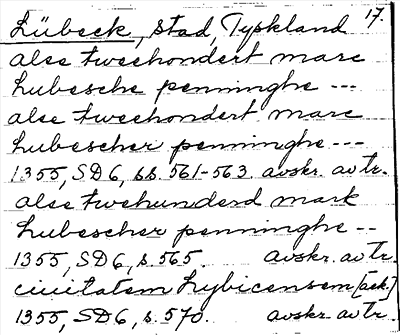 17.
Lübeck, stad, Tyskland
alse tweehondert marc
lubesche penninghe ---
alse tweehondert marc
lubescher penninghe ---
1355, SD6, ss. 561-563. avskr. av tr.
alse twehunderd mark
lubescher penninghe --
1355, SD6, s. 565. avskr. av tr.
ciuitatem Lybicensem [ack.]
1355, SD6, s. 570. avskr. av tr.